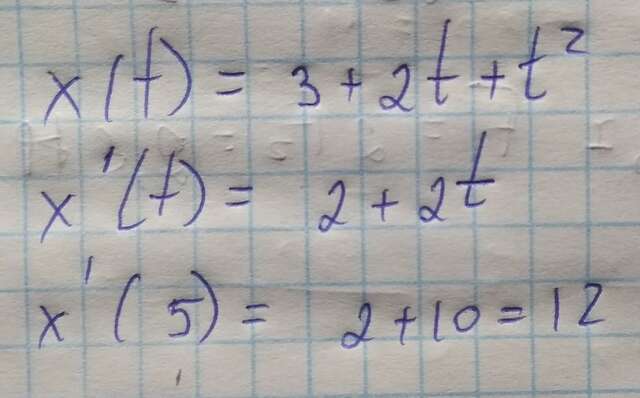 x(t) = 3 + 2t + t²
x'(t) = 2 + 2t
x'(5) = 2 + 10 = 12